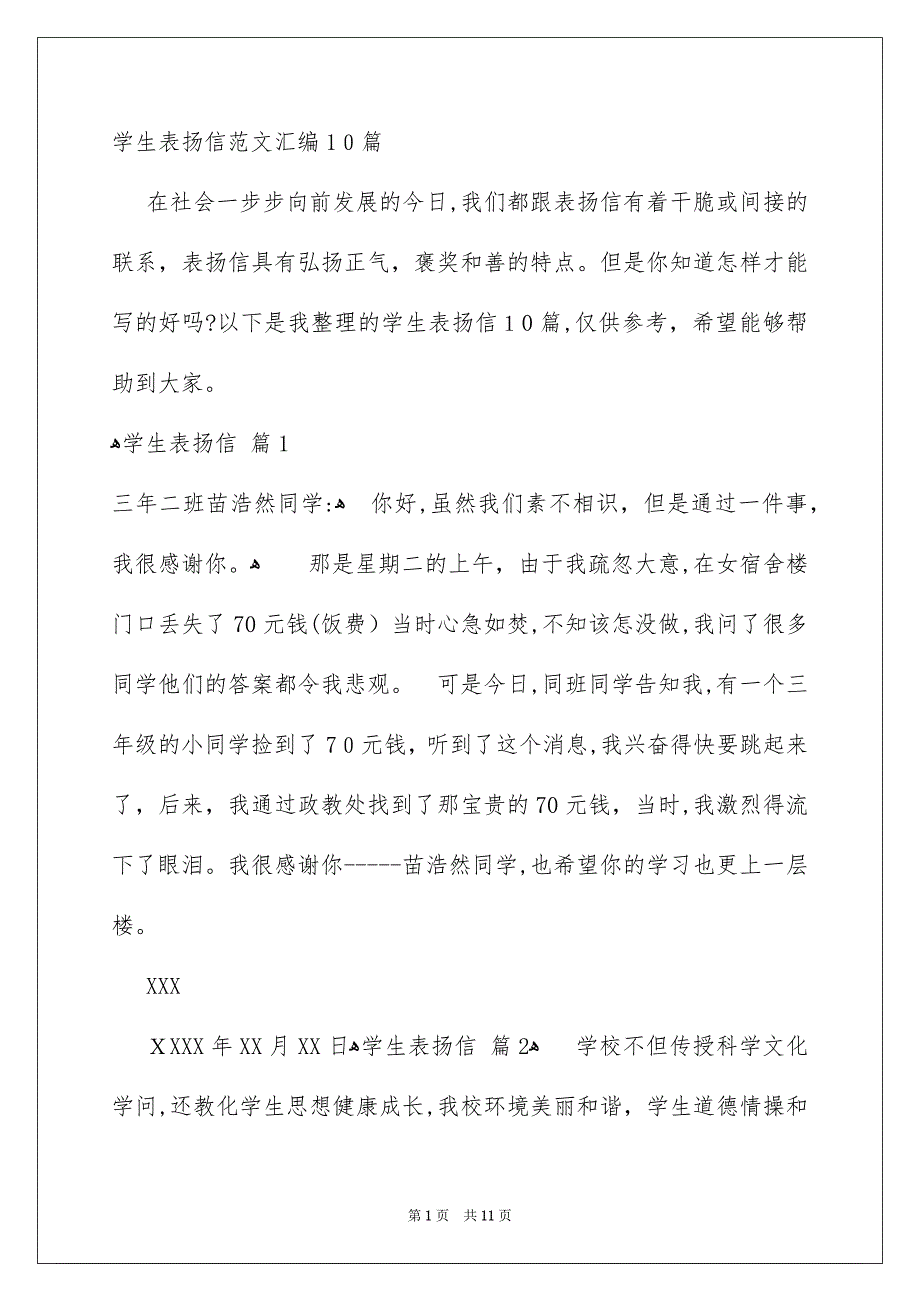 学生表扬信范文汇编10篇
在社会一步步向前发展的今日,我们都跟表扬信有着干脆或间接的
联系，表扬信具有弘扬正气，褒奖和善的特点。但是你知道怎样才能
写的好吗?以下是我整理的学生表扬信10篇,仅供参考，希望能够帮
助到大家。
ﻫ学生表扬信 篇1
三年二班苗浩然同学:ﻫ 你好,虽然我们素不相识，但是通过一件事,
我很感谢你。ﻫ 那是星期二的上午，由于我疏忽大意,在女宿舍楼
门口丢失了70元钱(饭费）当时心急如焚,不知该怎没做,我问了很多
同学他们的答案都令我悲观。 可是今日,同班同学告知我,有一个三
年级的小同学捡到了70元钱，听到了这个消息,我兴奋得快要跳起来
了，后来，我通过政教处找到了那宝贵的70元钱，当时,我激烈得流
下了眼泪。我很感谢你-----苗浩然同学,也希望你的学习也更上一层
楼。
XXX
XXXX年XX月XX日ﻫ学生表扬信 篇2ﻫ 学校不但传授科学文化
学问,还教化学生思想健康成长,我校环境美丽和谐，学生道德情操和
第1页 共11页